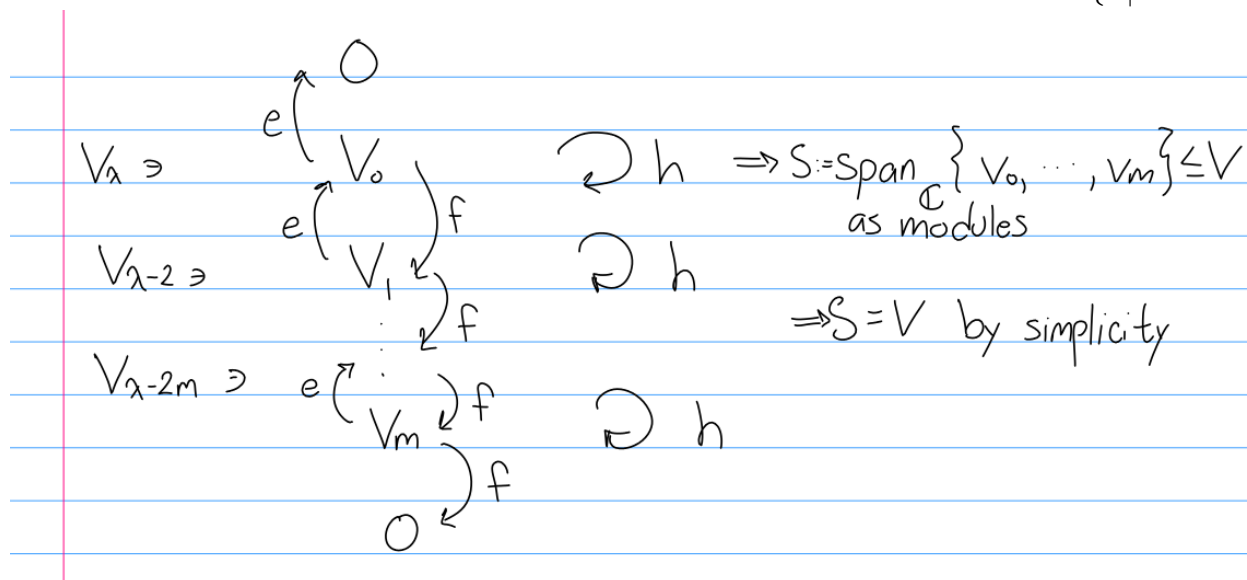 0
e
V_λ ∋ v_0 h ⇒ S:=span_ℂ {v_0, ⋯, v_m} ≤ V
as modules
e f
V_{λ-2} ∋ v_1 h
f
⇒ S = V by simplicity
⋮
V_{λ-2m} ∋ e f
v_m h
f
0